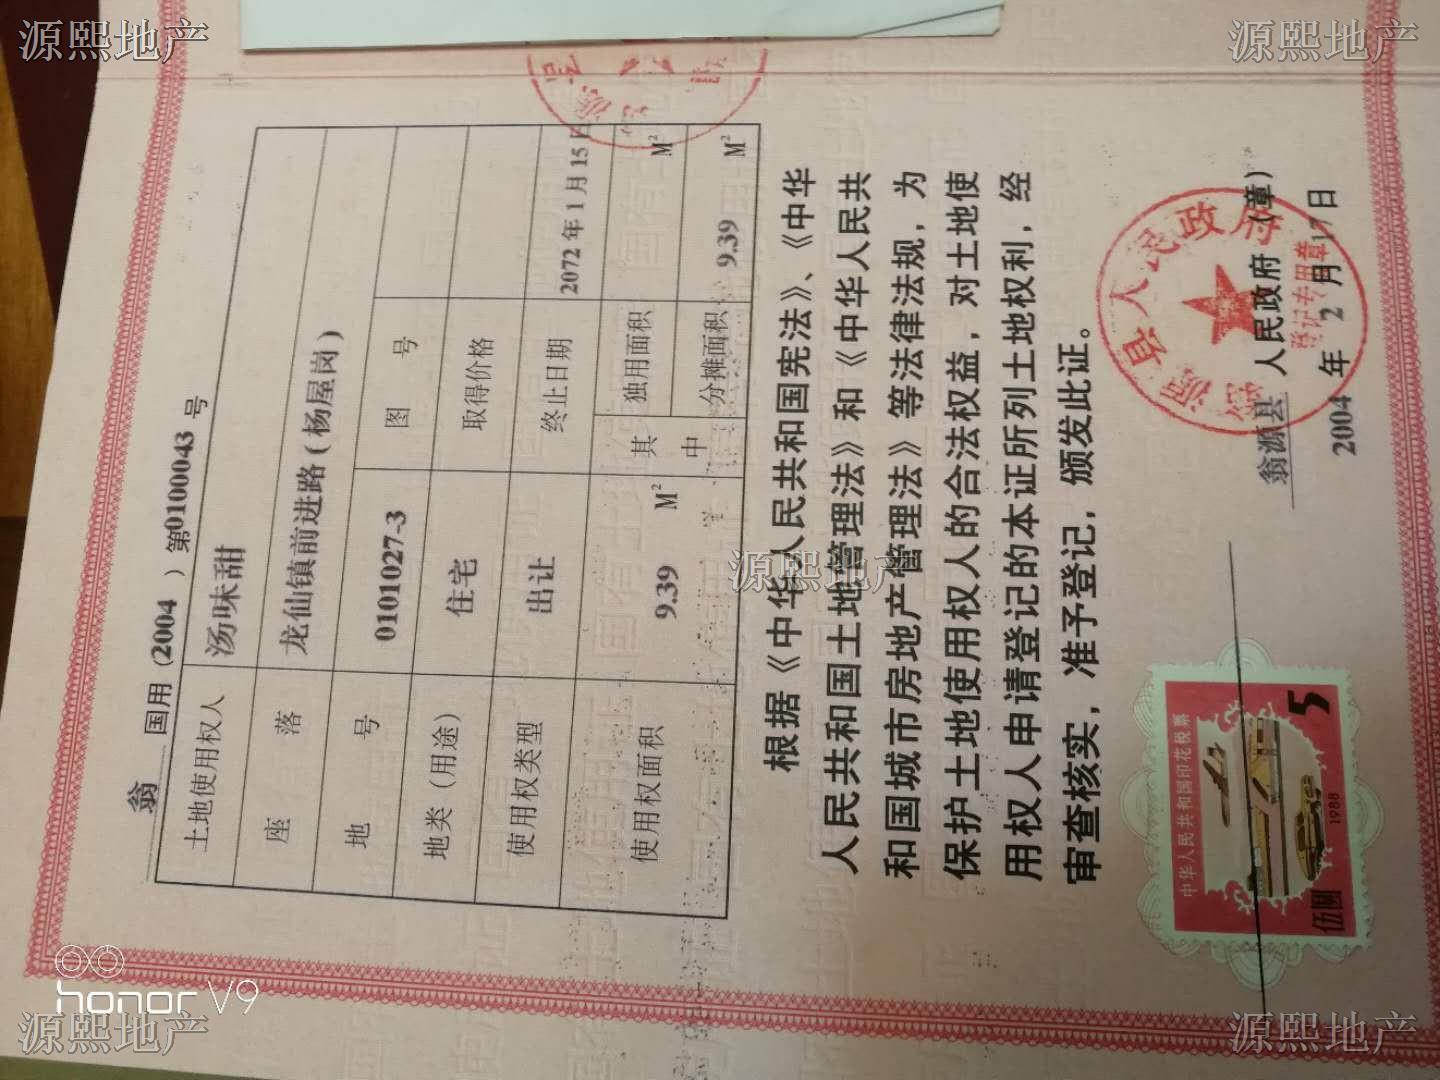 源熙地产
源熙地产
翁 国用(2004)第0100043号
土地使用权人 汤味甜
座落 龙仙镇前进路(杨屋岗)
地号 0101027-3 图号
地类(用途) 住宅 取得价格
使用权类型 出让 终止日期 2072年1月15日
使用权面积 9.39 M² 其中 独用面积 M²
分摊面积 9.39 M²
根据《中华人民共和国宪法》、《中华
人民共和国土地管理法》和《中华人民共
和国城市房地产管理法》等法律法规，为
保护土地使用权人的合法权益，对土地使
用权人申请登记的本证所列土地权利，经
审查核实，准予登记，颁发此证。
源熙地产
翁源县 人民政府(章)
2004年2月17日
翁源县人民政府
登记专用章
中华人民共和国印花税票
1988
伍圆 5
honor V9
源熙地产
源熙地产